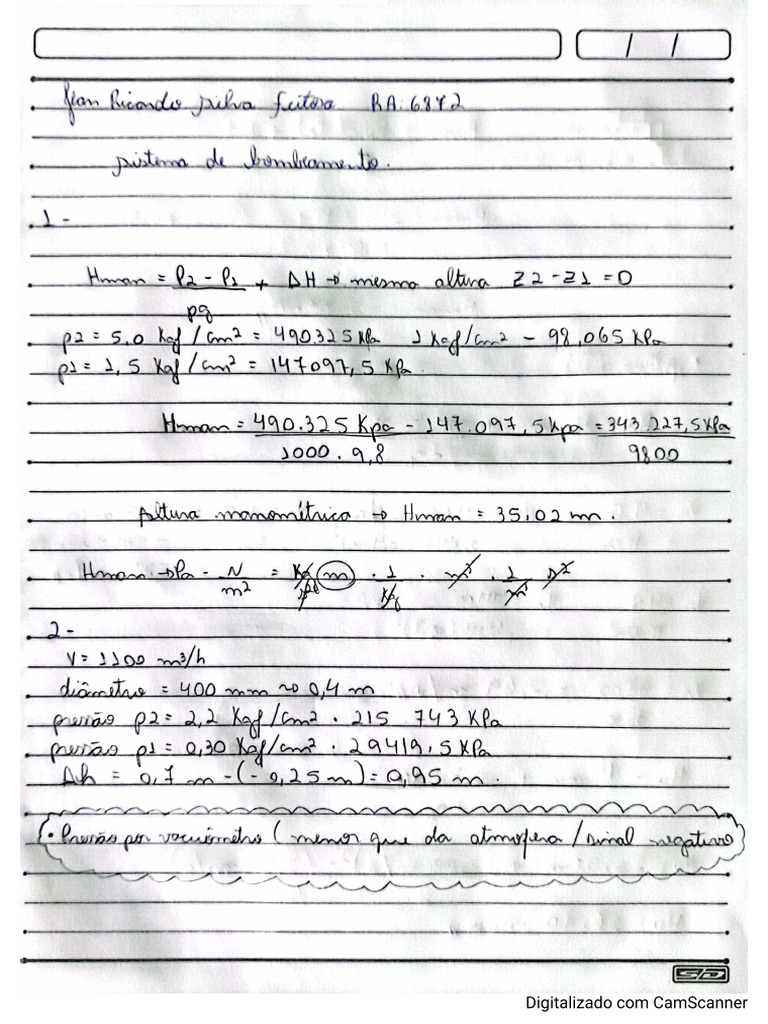 / /
Jean Ricardo silva feitosa RA: 6872
sistema de bombeamento.
1 -
Hman = P2 - P1 + ΔH → mesma altura Z2 - Z1 = 0
ρg
p2 = 5.0 Kgf/cm² = 490325 KPa 1 Kgf/cm² - 98,065 KPa
p1 = 1,5 Kgf/cm² = 147097,5 KPa
Hman = 490.325 Kpa - 147.097,5 kpa = 343.227,5 KPa
1000 . 9,8 9800
Altura manométrica → Hman = 35.02 m.
Hman → Pa - N = Kg m . 1 . m³ . 1 s²
m² Kg m
2 -
V = 1100 m³/h
diâmetro = 400 mm → 0,4 m
pressão p2 = 2,2 Kgf/cm² . 215 743 KPa
pressão p1 = 0,30 Kgf/cm² . 29419,5 KPa
Δh = 0,7 m - (- 0,25 m) = 0,95 m.
• Pressão por vacuômetro (menor que da atmosfera / sinal negativo
SD
Digitalizado com CamScanner